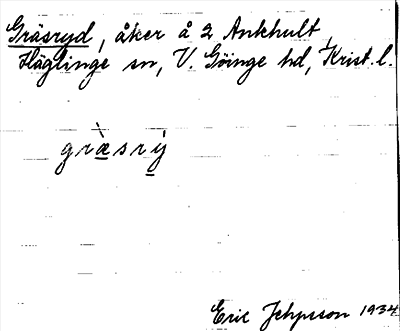 Gräsryd, åker å 2 Ankhult,
Häglinge sn, V. Göinge hd, Krist. l.
græ̀srý
Eric 1934